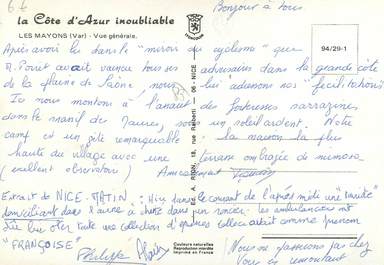 6 f
Bonjour à tous
la Côte d'Azur inoubliable
LES MAYONS (Var) - Vue générale.
94/29-1
Après avoir lu dans le "miroir du cyclisme" que
M. Poirot avait vaincu tous ses adversaires dans la grande côte
de la plaine de Saône nous lui adressons nos "félicitations"
Ici nous montons à l'assaut des forteresses sarrazines
dans le massif des Maures, sous un soleil ardent. Notre
camp est un gîte remarquable la maison la plus
haute du village avec une terrasse ombragée de mimosa
(excellent observatoire) Amicalement
Extrait de NICE-MATIN: Hier dans le courant de l'après midi une
domiciliant dans l'usine à chanter dans un roncier. les ambulanciers ont
dû lui ôter toute une collection d'épines collectait comme prénom
"FRANÇOISE"
Philippe Alain
Nous ne passerons pas chez
Vous en remontant
Ed. A. RION, 18, rue Reiberti - 06-NICE
Couleurs naturelles
Reproduction interdite
Imprimé en France